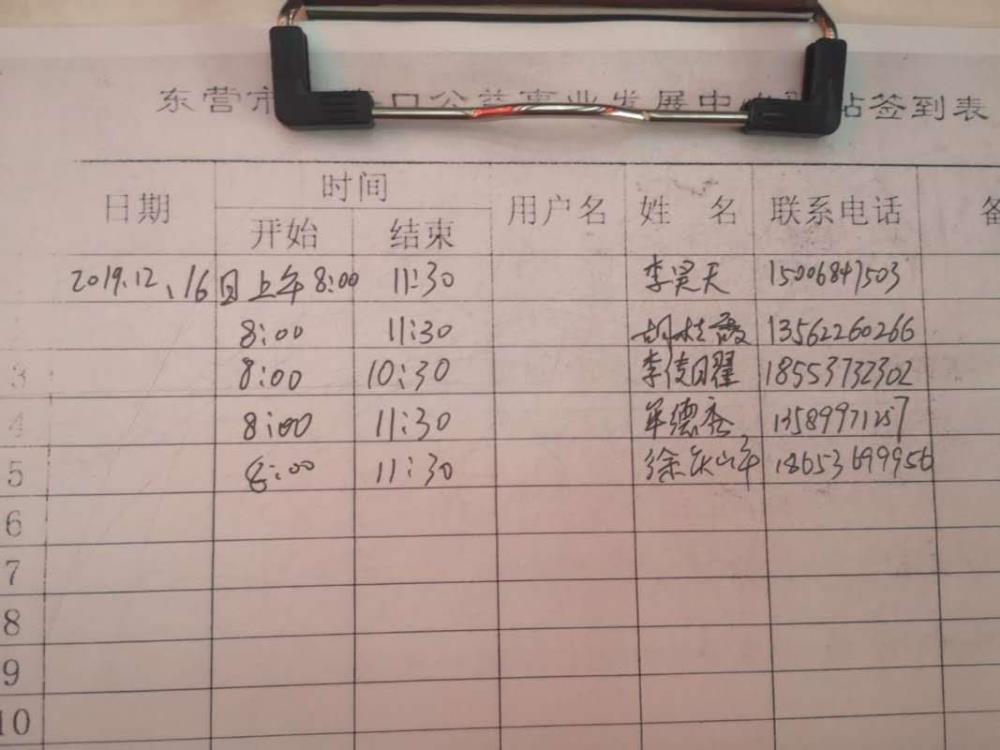 东营市 口公益事业发展中 站签到表
日期 时间 用户名 姓 名 联系电话 备
开始 结束
2019.12、16日上午8:00 11:30 李昊天 15006847503
8:00 11:30 胡 霞 13562260266
3 8:00 10:30 李 曜 18553732302
4 8:00 11:30 德 13589971257
5 8:00 11:30 徐 18653699956
6
7
8
9
10